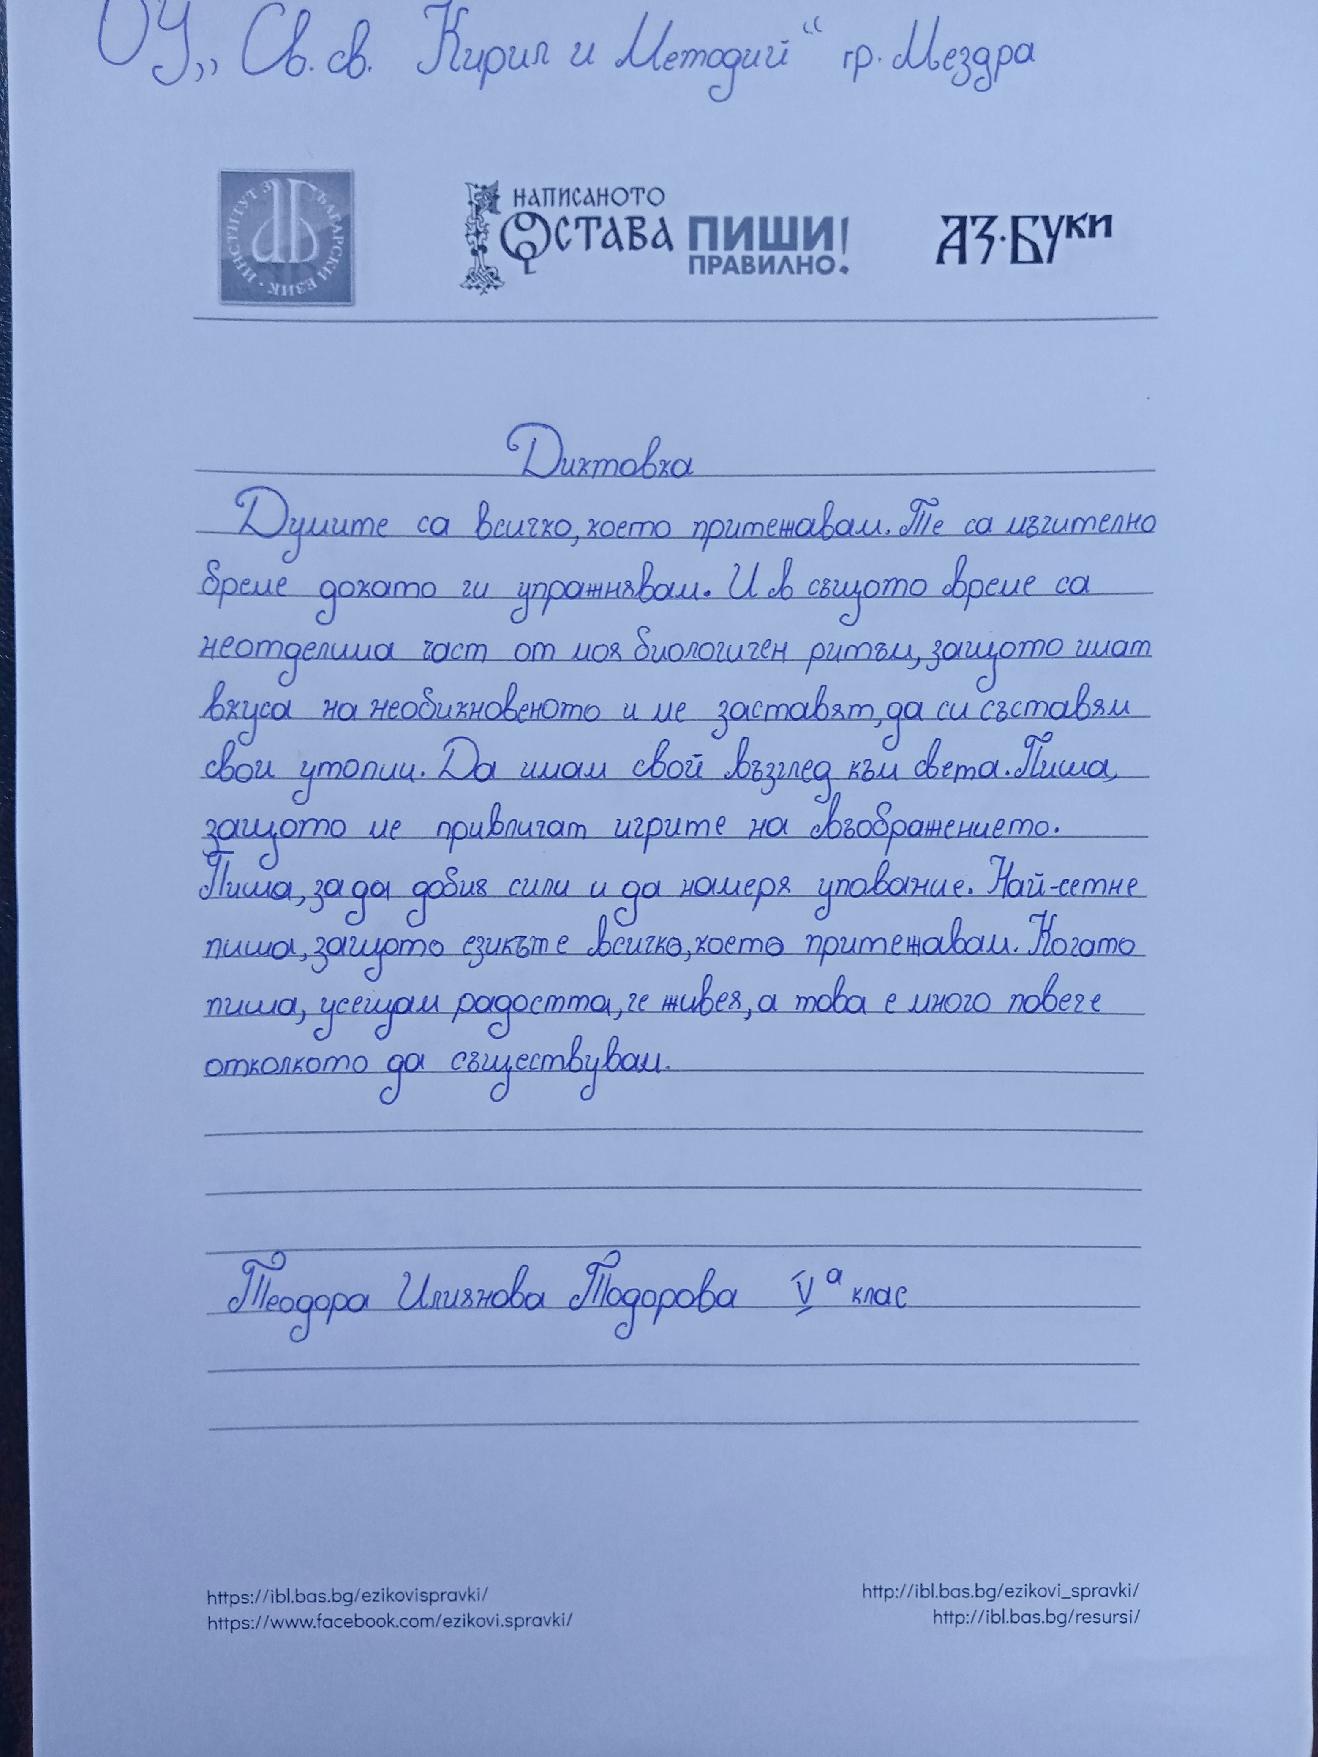 ОУ „Св. св. Кирил и Методий“ гр. Мездра
ИНСТИТУТ ЗА БЪЛГАРСКИ ЕЗИК
НАПИСАНОТО
ОСТАВА ПИШИ
ПРАВИЛНО!
АЗ·БУКИ
Диктовка
Думите са всичко, което притежавам. Те са мъчително
бреме докато ги упражнявам. И в същото време са
неотделима част от моя биологичен ритъм, защото имат
вкуса на необикновеното и ме заставят, да си съставям
свои утопии. Да имам свой възглед към света. Пиша,
защото ме привличат игрите на въображението.
Пиша, за да добия сили и да намеря упование. Най-сетне
пиша, защото езикът е всичко, което притежавам. Когато
пиша, усещам радостта, че живея, а това е много повече
отколкото да съществувам.
Теодора Илиянова Тодорова V а клас
https://ibl.bas.bg/ezikovispravki/ http://ibl.bas.bg/ezikovi_spravki/
https://www.facebook.com/ezikovi.spravki/ http://ibl.bas.bg/resursi/